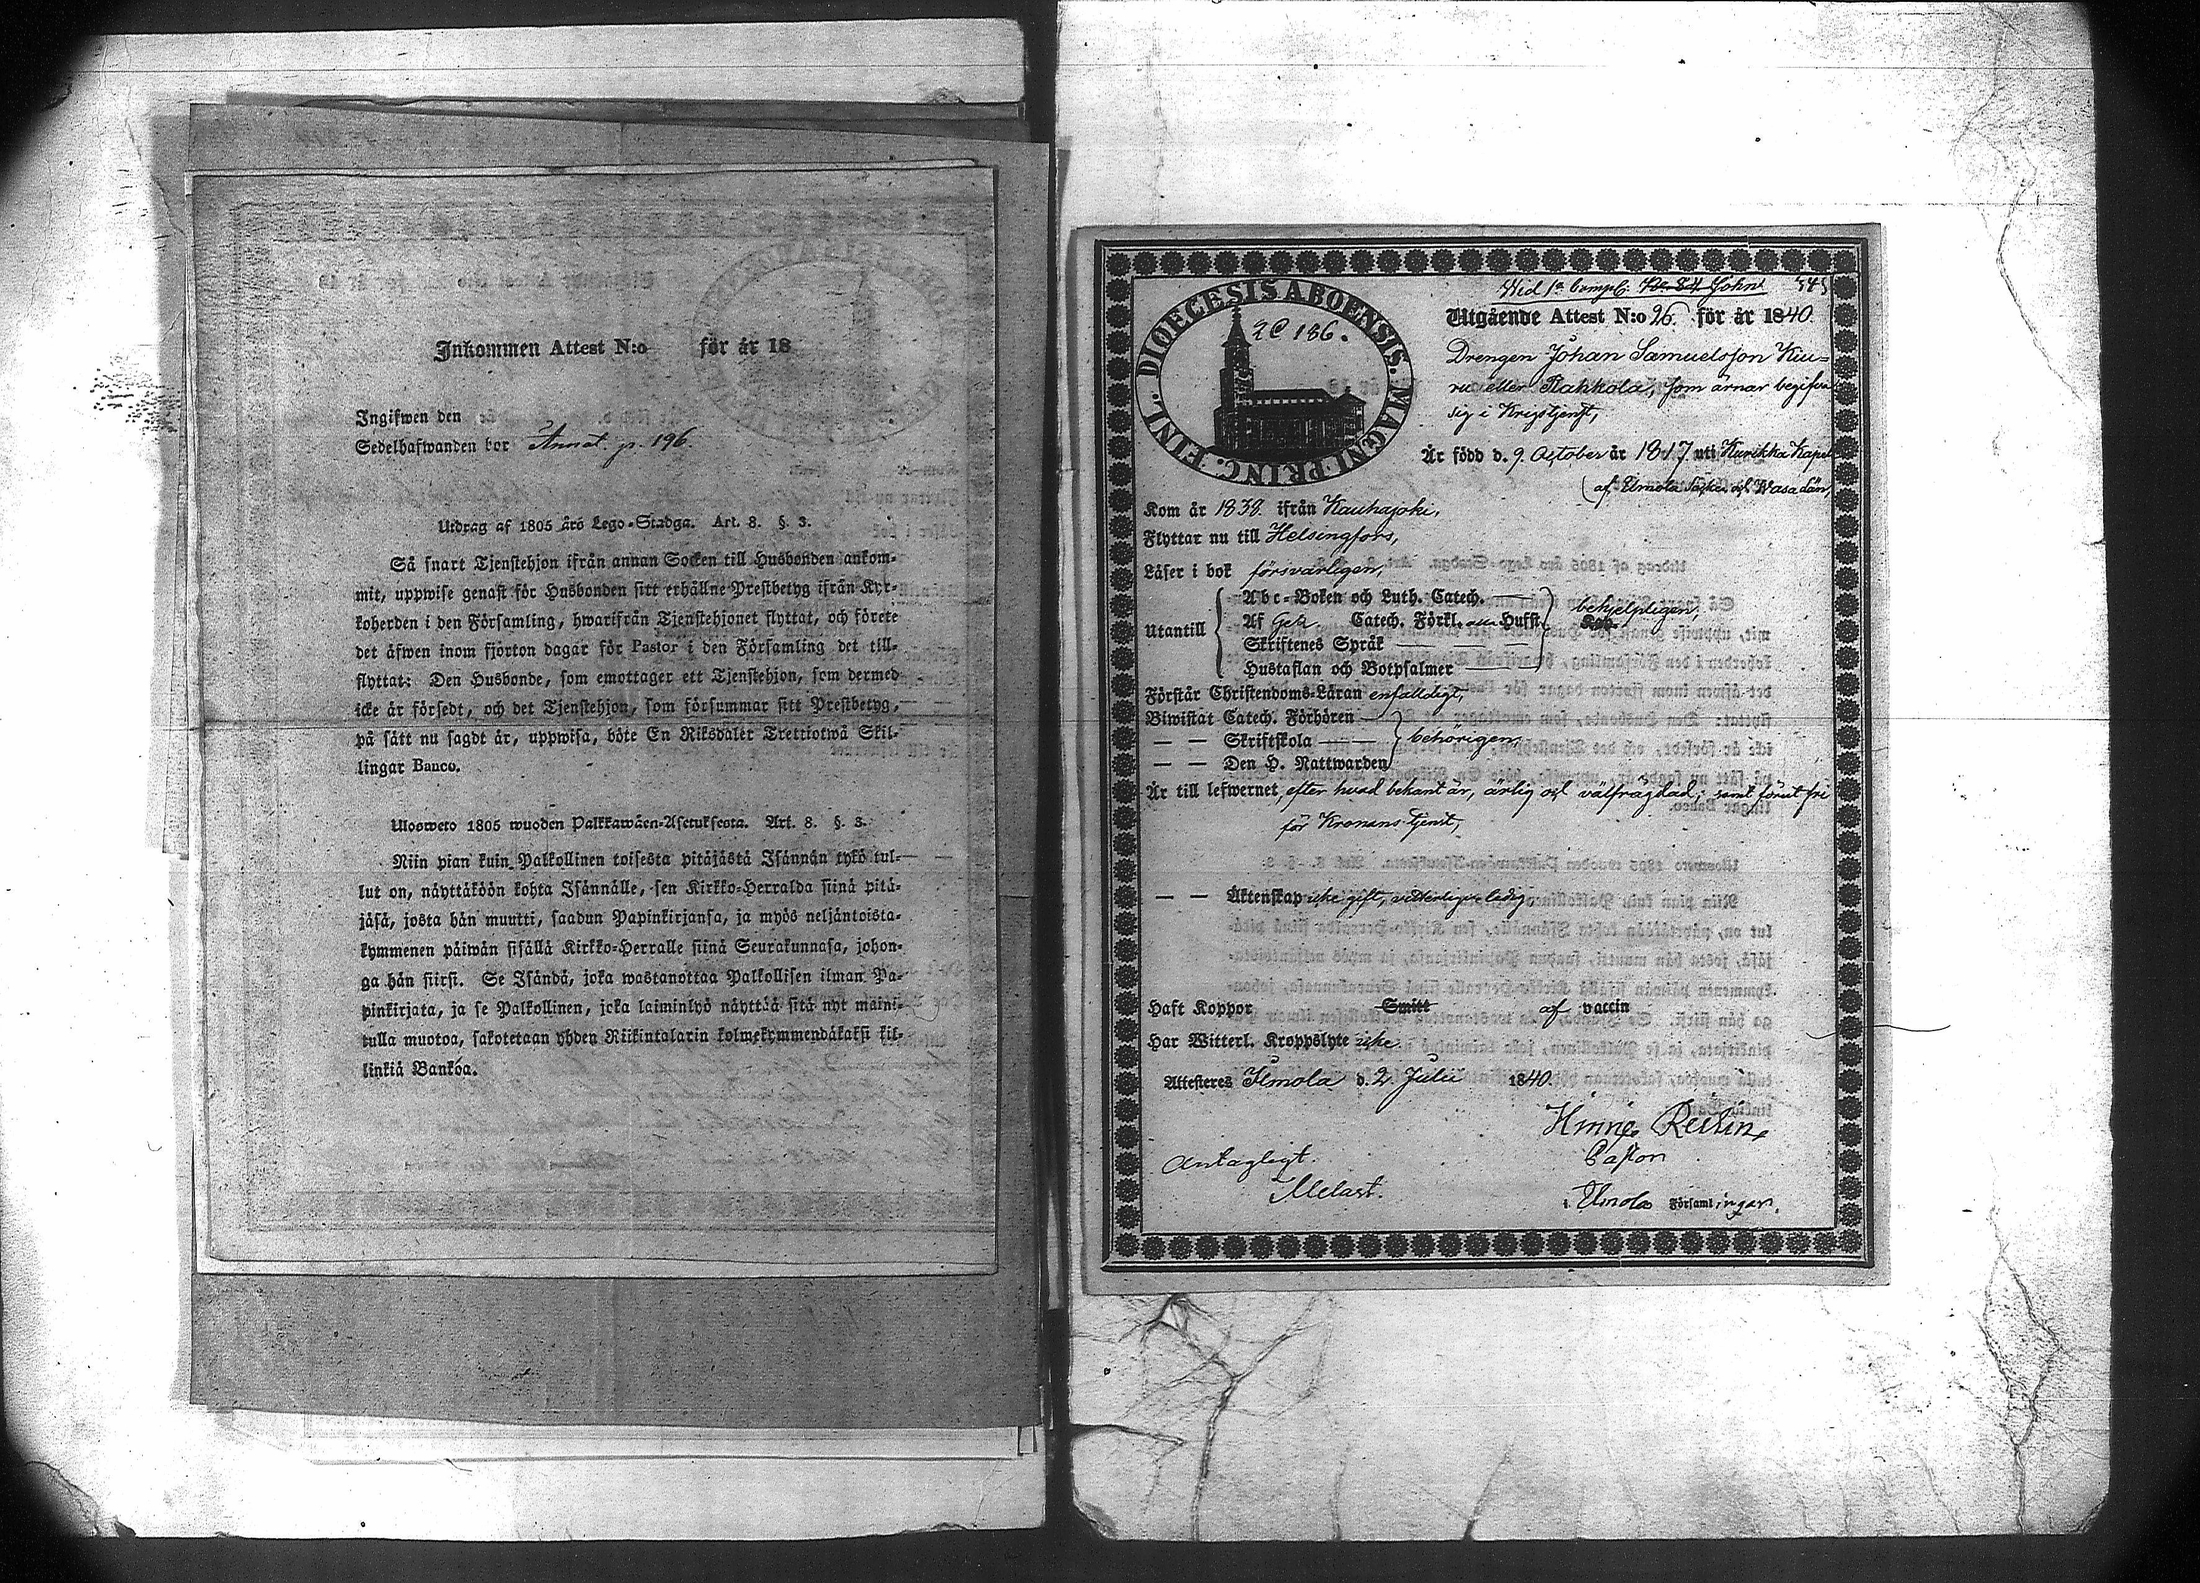 Inkommen Attest N:o för år 18
Ingifwen den
Sedelhafwanden bor Annot. p. 196.
Utdrag af 1805 års Lego-Stadga. Art. 8. §. 3.
Så snart Tjenstehjon ifrån annan Socken till Husbonden ankom-
mit, uppwise genast för Husbonden sitt erhållne Prestbetyg ifrån Kyr-
koherden i den Församling, hwarifrån Tjenstehjonet flyttat, och förete
det äfwen inom fjorton dagar för Pastor i den Församling det till-
flyttat: Den Husbonde, som emottager ett Tjenstehjon, som dermed
icke är försedt, och det Tjenstehjon, som försummar sitt Prestbetyg,
på sätt nu sagdt är, uppwisa, böte En Riksdaler Trettiotwå Skil-
lingar Banco.
Ulosweto 1805 wuoden Palkkawäen-Asetuksesta. Art. 8. §. 3.
Niin pian kuin Palkollinen toisesta pitäjästä Isännän tykö tul-
lut on, näyttäköön kohta Isännälle, sen Kirkko-Herralda siinä pitä-
jäsä, josta hän muutti, saadun Papinkirjansa, ja myös neljäntoista-
kymmenen päiwän sisällä Kirkko-Herralle siinä Seurakunnasa, johon-
ga hän siirsi. Se Isändä, joka wastanottaa Palkollisen ilman Pa-
pinkirjata, ja se Palkollinen, joka laiminlyö näyttää sitä nyt maini-
tulla muotoa, sakotetaan yhden Riikintalarin kolmekymmendäkaksi kil-
linkiä Bankoa.
Wid 1a Comp. John
DIOECESIS ABOENSIS. MAGNI PRINC. FINL.
2C 186.
Utgående Attest N:o 96. för år 1840.
Drengen Johan Samuelsson Kiu-
ru eller Rahkola, som ärnar begifva
sig i Krigstjenst,
Är född d. 9. October år 1817 uti Kurikka Kapell
af Ilmola Socken och Wasa län,
Kom år 1838. ifrån Kauhajoki,
Flyttar nu till Helsingfors,
Läser i bok försvarligen,
Utantill
Abc-Boken och Luth. Catech.
Af Gez. Catech. Förkl. Husft.
behjelpligen,
Skriftenes Språk
Hustaflan och Botpsalmer
Förstår Christendoms-Läran enfaldigt,
Biwistat Catech. Förhören
— — Skriftskola behörigen,
— — Den H. Nattwarden
Är till lefwernet, efter hvad bekant är, ärlig och välfrägdad; samt förut fri
för Kronans tjenst,
— — Äktenskap icke gift, vitterligen ledig.
Haft Koppor Smitt af vaccin
Har Witterl. Kroppslyte icke
Attesteres Ilmola d. 2. Julii 1840.
Pastor
Antagligt.
i Ilmola Församlingar.